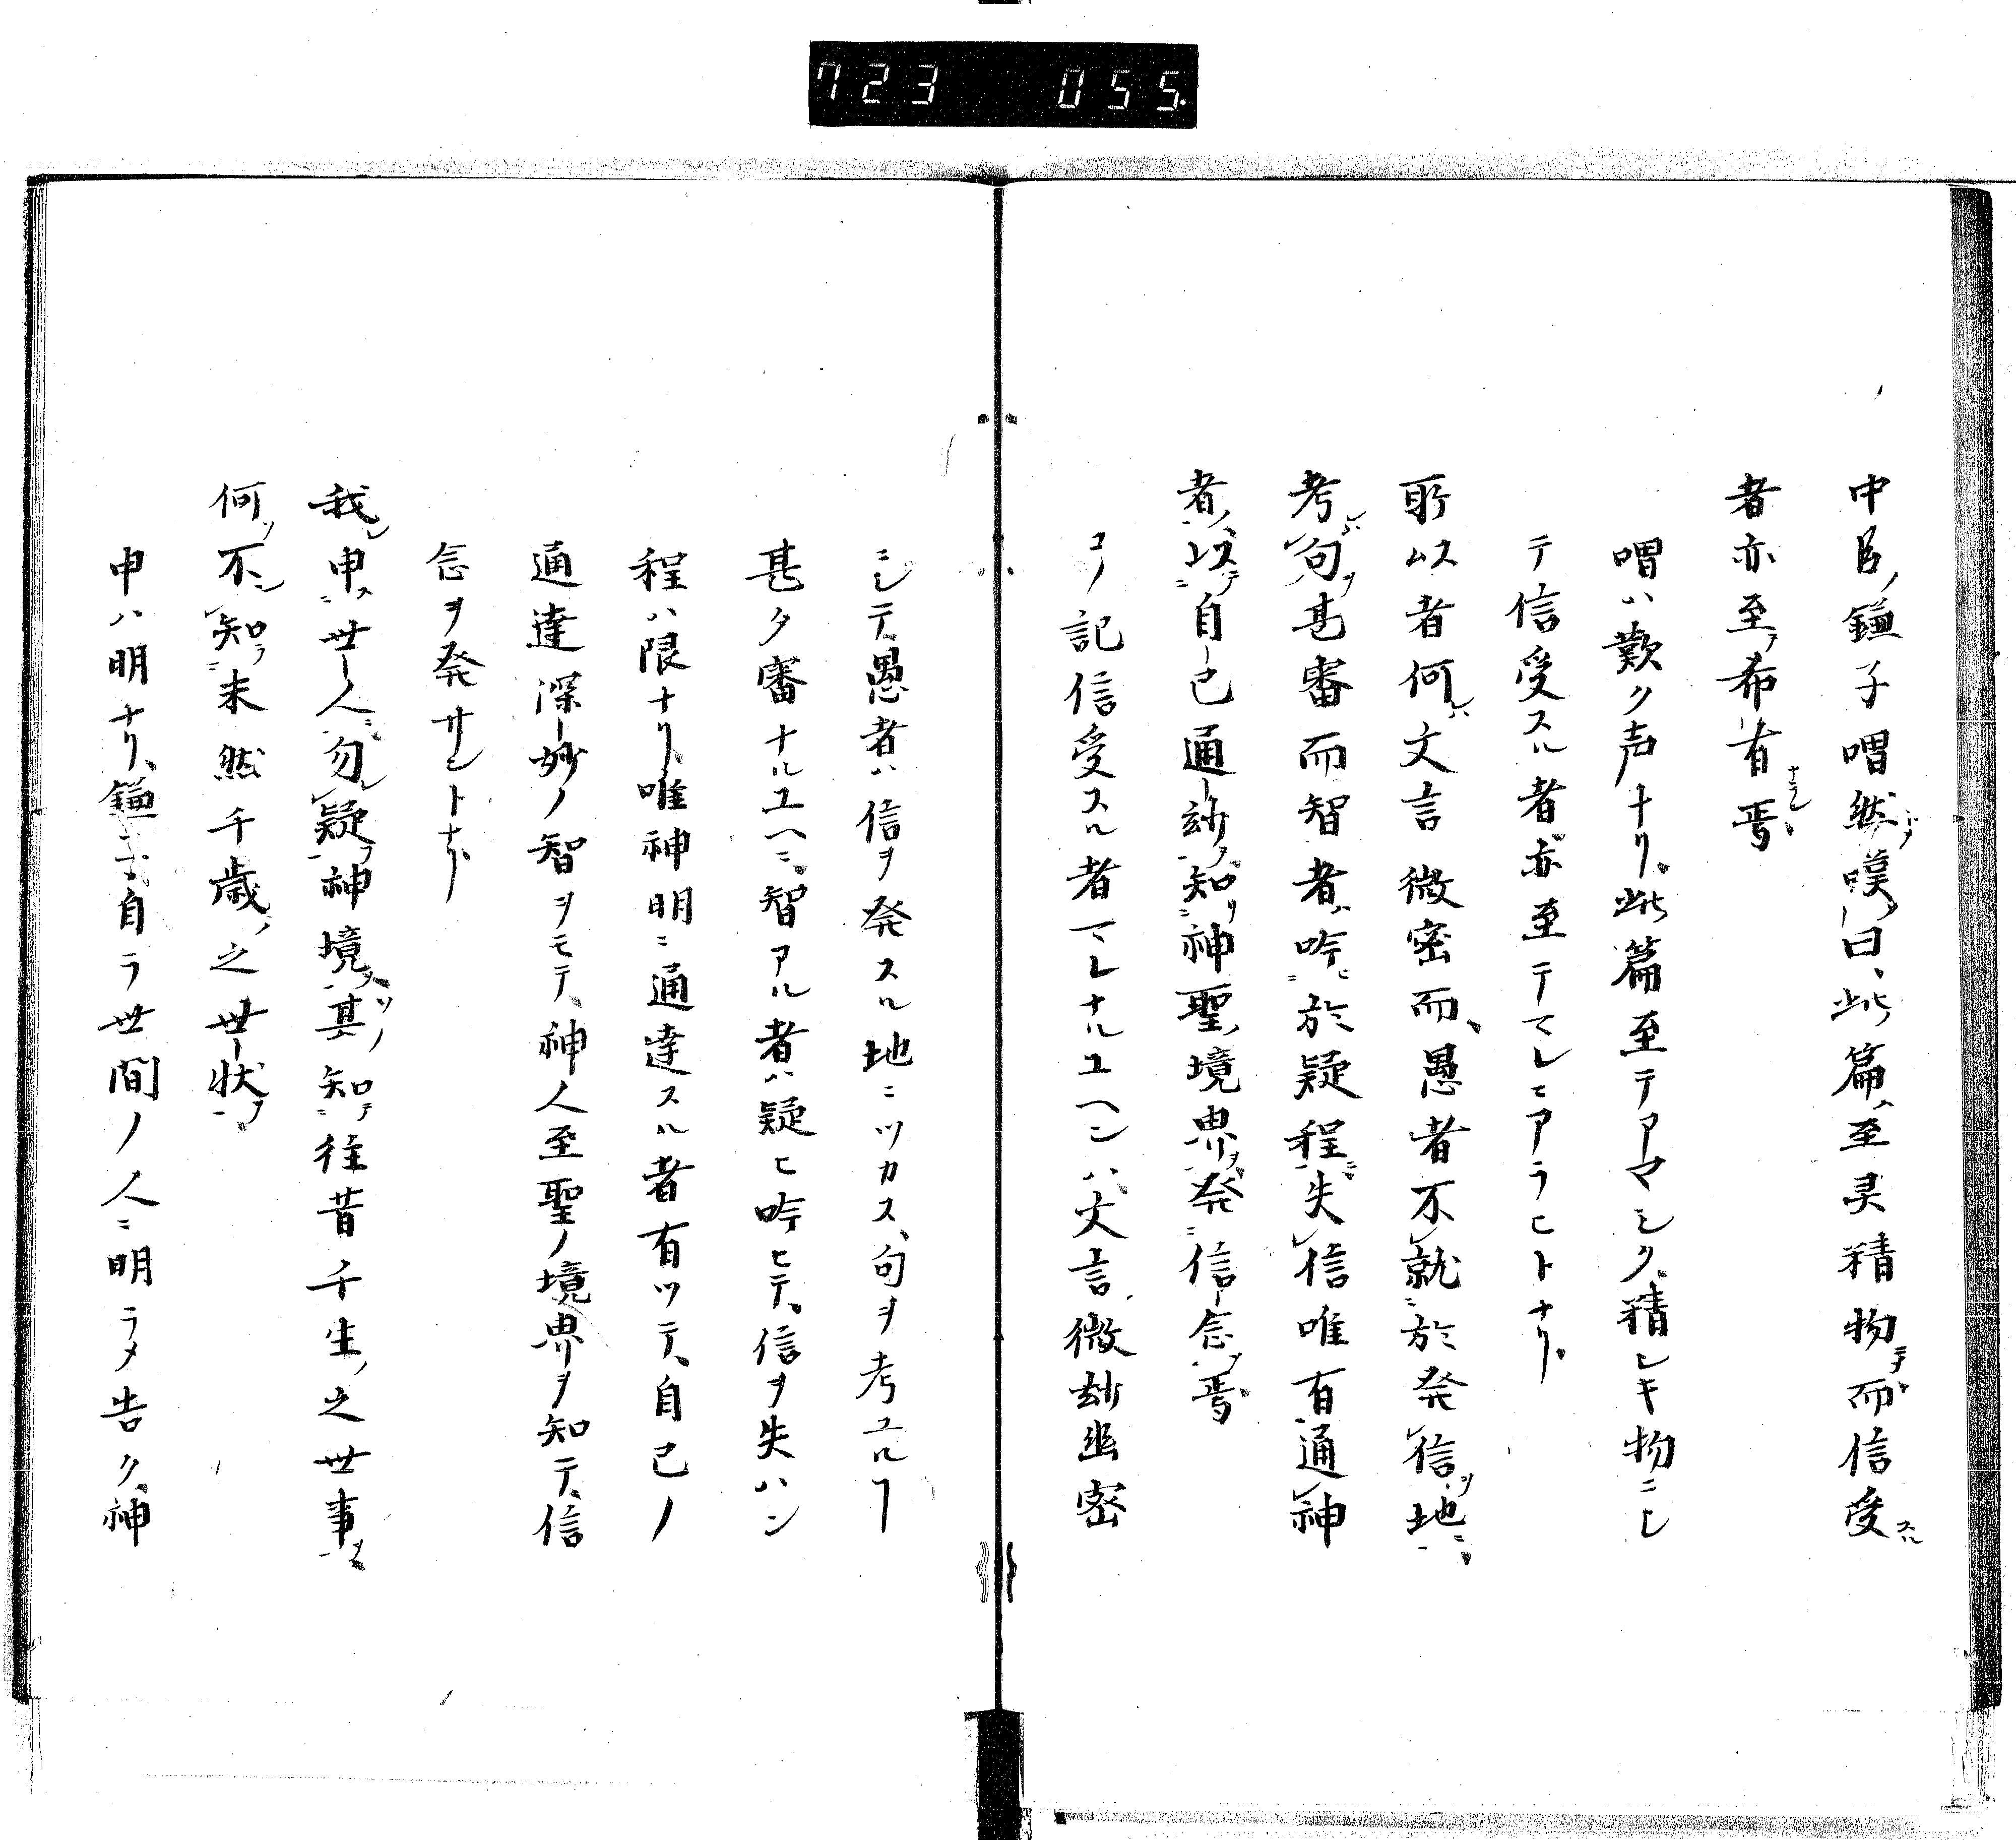 723 055
中臣ノ鎌子喟然トノ嘆曰、此篇ハ至灵精物ニヲ而信受スル
者亦至ヲ希有ナシ焉
喟ハ歎ク声ナリ、此篇至テアマシク精レキ物ニシ
テ信受スル者亦至テマレニアラヒトナリ、
所以者何レハ文言微密而愚者不就於発信ヲ地ニ
考レハ句ヲ甚審而智者ハ吟ヒ於疑程ニ失信唯有通神
者ノ以テ自己通妙ノ知リ神聖ノ境界ヲ発信念ヲ焉
コノ記信受スル者マレナルユヘンハ、文言微妙幽密
ニシテ愚者ハ信ヲ発スル地ニツカス、句ヲ考ユルヿ
甚タ審ナルユヘニ、智アル者ハ疑ヒ吟ヒテ、信ヲ失ハン
程ハ限ナリ、唯神明ニ通達スル者有ツテ、自己ノ
通達深妙ノ智ヲモテ、神人至聖ノ境界ヲ知テ、信
念ヲ発サントナリ
我レ申ス世人ニ勿レ疑フ神境ヲ、其ソノ知テ往昔千生ノ之世事ヲ
何ソ不ン知ラ未然千歳ノ之世状ヲ
申ハ明ナリ、鎌子自ラ世間ノ人ニ明ラメ告ク、神